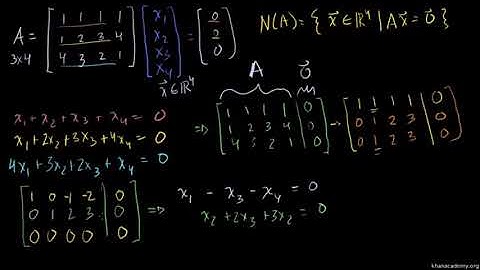 A = [1 1 1 1; 1 2 3 4; 4 3 2 1] [x₁; x₂; x₃; x₄] = [0; 2; 0]
3x4
x⃗ ∈ ℝ⁴
N(A) = { x⃗ ∈ ℝ⁴ | A x⃗ = 0⃗ }
A 0⃗
x₁ + x₂ + x₃ + x₄ = 0
x₁ + 2x₂ + 3x₃ + 4x₄ = 0
4x₁ + 3x₂ + 2x₃ + x₄ = 0
⇒ [1 1 1 1 | 0; 1 2 3 4 | 0; 4 3 2 1 | 0] → [1 1 1 1 | 0; 0 1 2 3 | 0; 0 1 2 3 | 0]
[1 0 -1 -2 | 0; 0 1 2 3 | 0; 0 0 0 0 | 0] ⇒ x₁ - x₃ - x₄ = 0
x₂ + 2x₃ + 3x₂ = 0
khanacademy.org